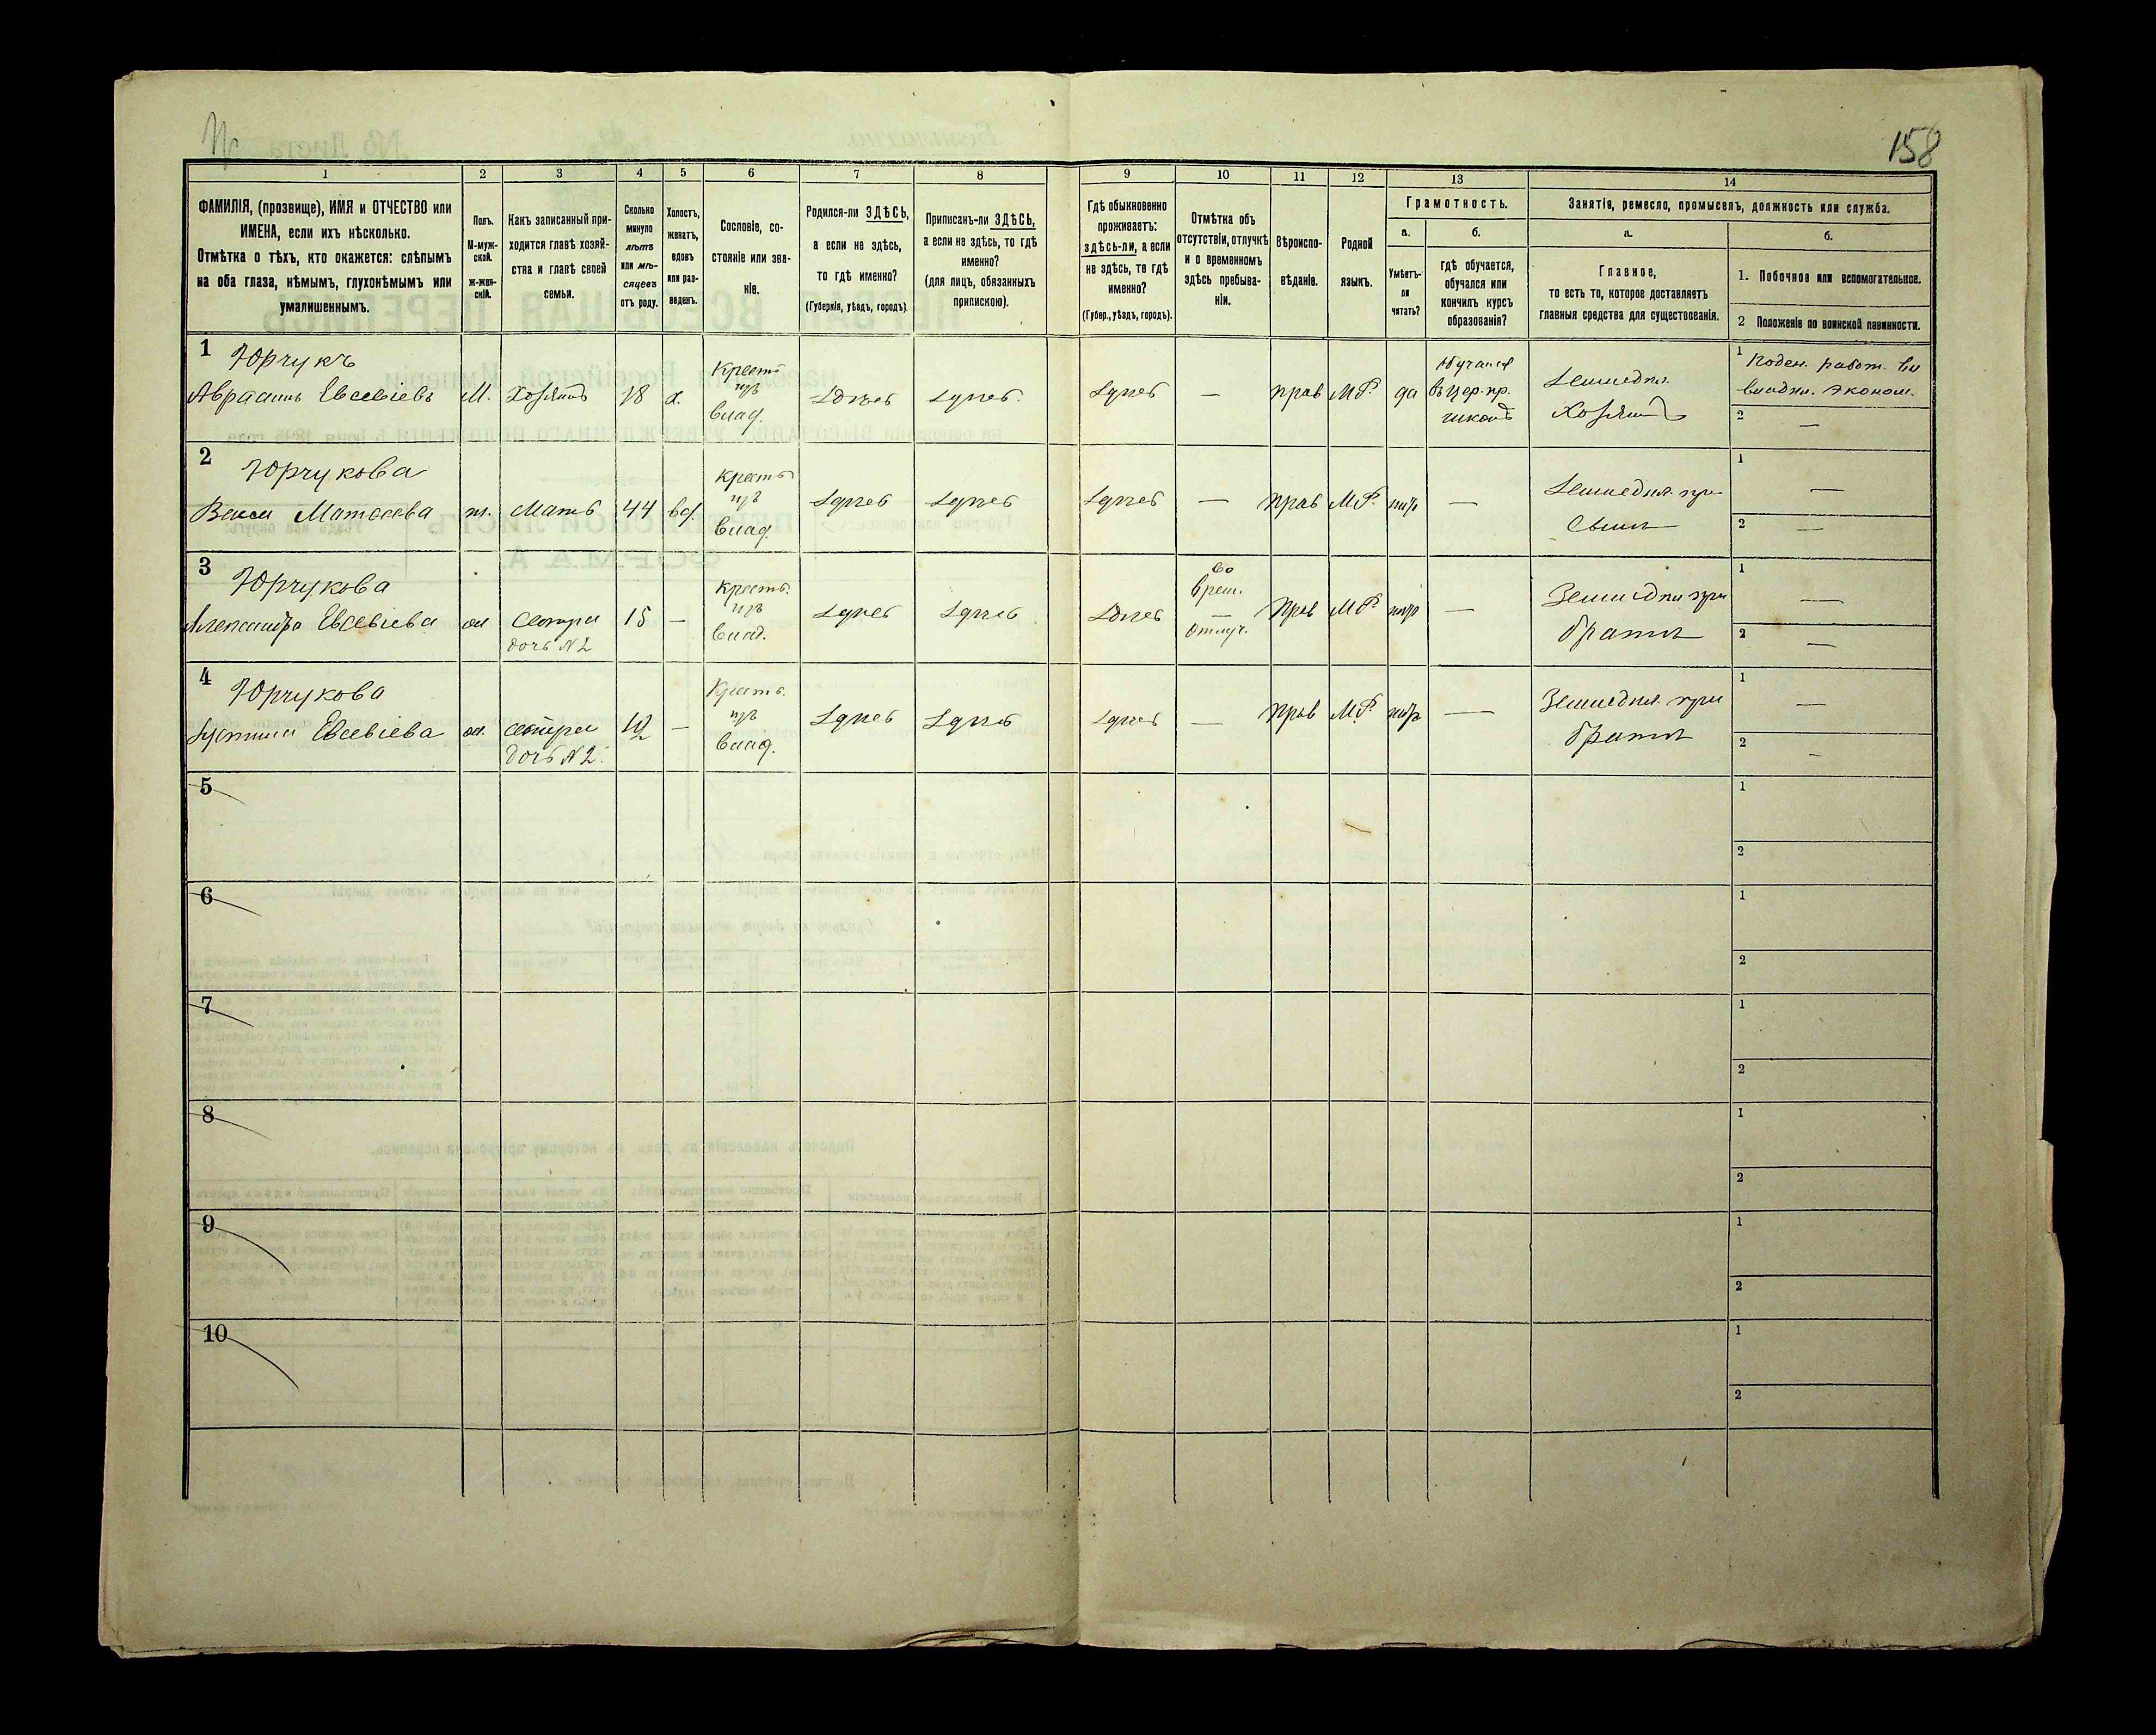 158
1
2
3
4
5
6
7
8
9
10
11
12
13
14
ФАМИЛІЯ, (прозвище), ИМЯ и ОТЧЕСТВО или
ИМЕНА, если ихъ нѣсколько.
Отмѣтка о тѣхъ, кто окажется: слѣпымъ
на оба глаза, нѣмымъ, глухонѣмымъ или
умалишеннымъ.
Полъ.
М-муж-
ской.
ж-жен-
скій.
Какъ записанный при-
ходится главѣ хозяй-
ства и главѣ своей
семьи.
Сколько
минуло
лѣтъ
или мѣ-
сяцевъ
отъ роду.
Холостъ,
женатъ,
вдовъ
или раз-
веденъ.
Сословіе, со-
стояніе или зва-
ніе.
Родился-ли ЗДѢСЬ,
а если не здѣсь,
то гдѣ именно?
(Губернія, уѣздъ, городъ).
Приписанъ-ли ЗДѢСЬ,
а если не здѣсь, то гдѣ
именно?
(для лицъ, обязанныхъ
припискою).
Гдѣ обыкновенно
проживаетъ:
здѣсь-ли, а если
не здѣсь, то гдѣ
именно?
(Губер., уѣздъ, городъ).
Отмѣтка объ
отсутствіи, отлучкѣ
и о временномъ
здѣсь пребыва-
ніи.
Вѣроиспо-
вѣданіе.
Родной
языкъ.
Грамотность.
а.
Умѣетъ-
ли
читать?
б.
гдѣ обучается,
обучался или
кончилъ курсъ
образованія?
Занятія, ремесло, промыселъ, должность или служба.
а.
Главное,
то есть то, которое доставляетъ
главныя средства для существованія.
б.
1. Побочное или вспомогательное.
2 Положеніе по воинской повинности.
1 Юрчукъ
Авраамъ Евсевіевъ М. Хозяинъ 18 х.
Крестъ
изъ
влад.
Здѣсь Здѣсь Здѣсь — прав М.Р. да
обучался
въ цер. пр.
школѣ
Земледѣл.
Хозяинъ
1 Поден. работ. въ
владѣл. эконом.
2 —
2 Юрчукова
Матѣева ж. Мать 44 вд.
Крестъ
изъ
влад.
Здѣсь Здѣсь Здѣсь — прав М.Р. нѣтъ —
Земледѣл. при
Сынѣ
1 —
2 —
3 Юрчукова
Александра Евсевіева ж Сестра 15 —
дочь №2
Крестъ.
изъ
влад.
Здѣсь Здѣсь Здѣсь
во
врем.
—
отлуч.
Прав М.Р. нѣтъ —
Земледѣл при
братѣ
1 —
2 —
4 Юрчукова
Устинья Евсевіева ж. Сестра 12 —
дочь №2.
Крестъ.
изъ
влад.
Здѣсь Здѣсь Здѣсь — Прав М.Р. нѣтъ —
Земледѣл. при
братѣ
1 —
2 —
5
1
2
6
1
2
7
1
2
8
1
2
9
1
2
10
1
2